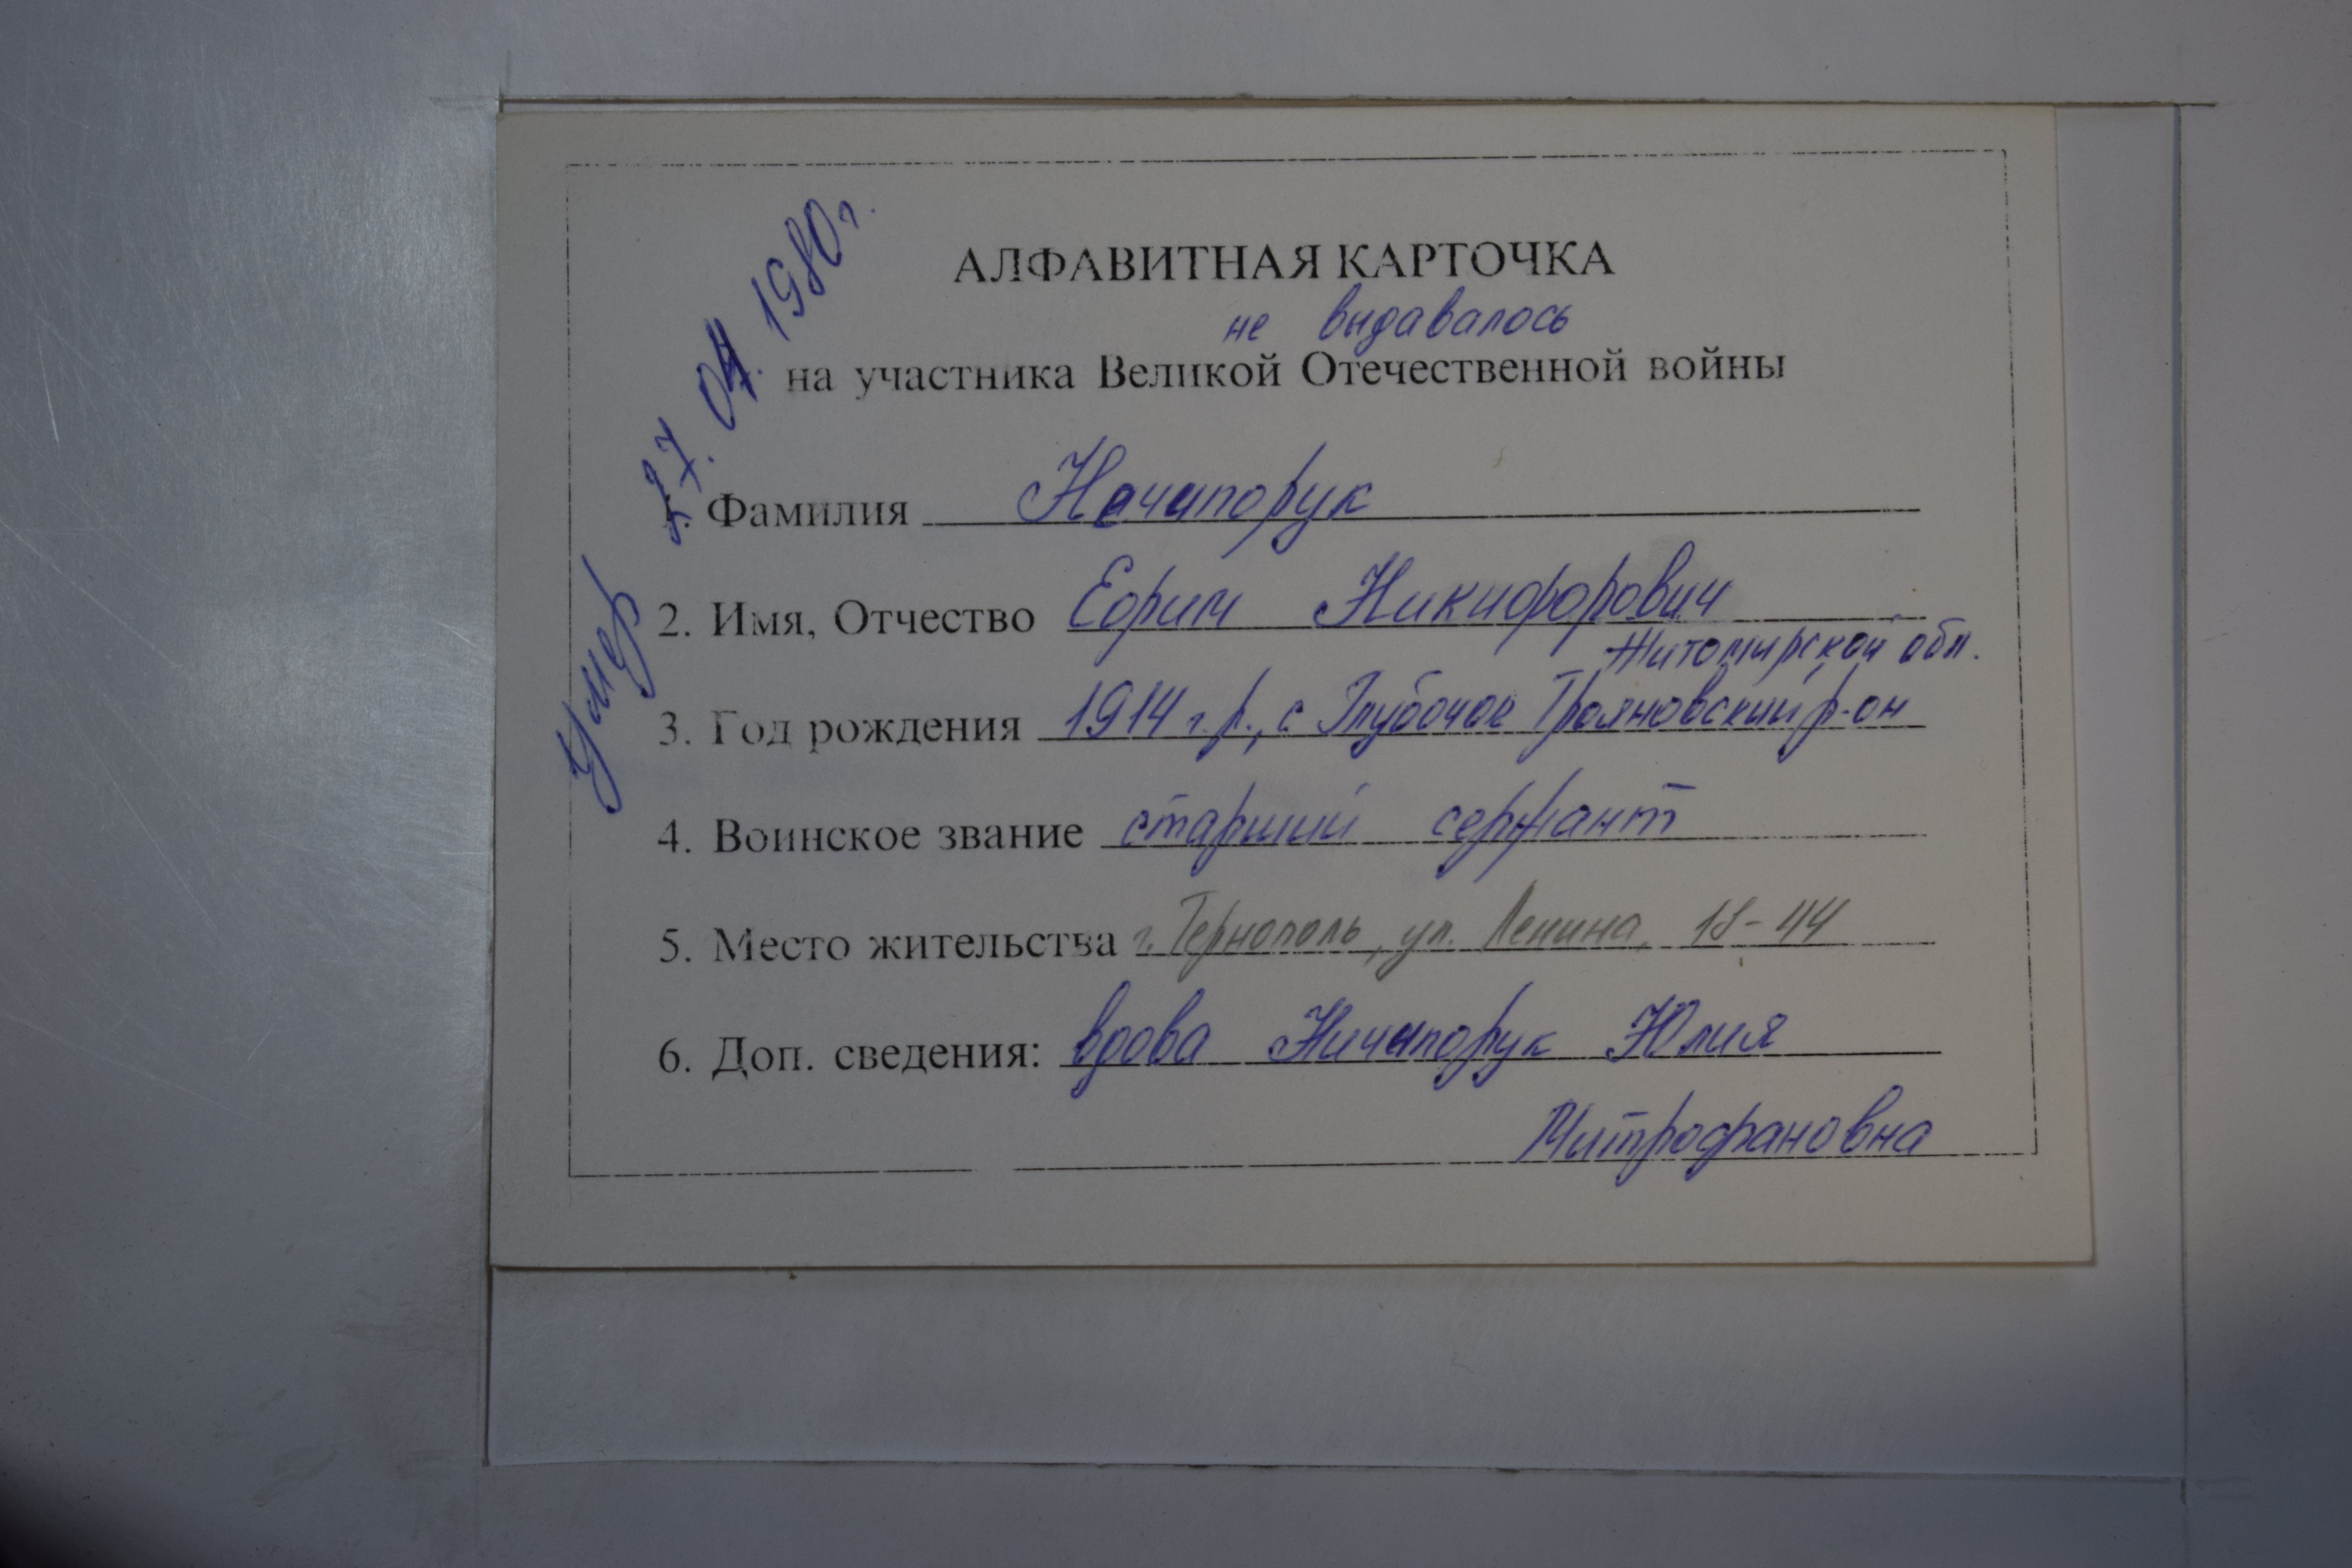 АЛФАВИТНАЯ КАРТОЧКА
не выдавалось
на участника Великой Отечественной войны
Умер 27. 04. 1980 г.
1. Фамилия Начипорук
2. Имя, Отчество Ефрим Никифорович
Житомирской обл.
3. Год рождения 1914 г.р., с Глубочое Трояновский р-он
4. Воинское звание старший сержант
5. Место жительства г. Тернополь, ул. Ленина, 18-44
6. Доп. сведения: вдова Ничипорук Юлия
Митрофановна